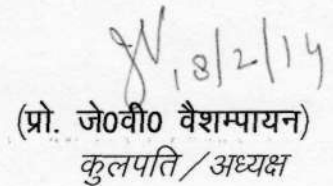 18/2/14
(प्रो. जे0वी0 वैशम्पायन)
कुलपति / अध्यक्ष